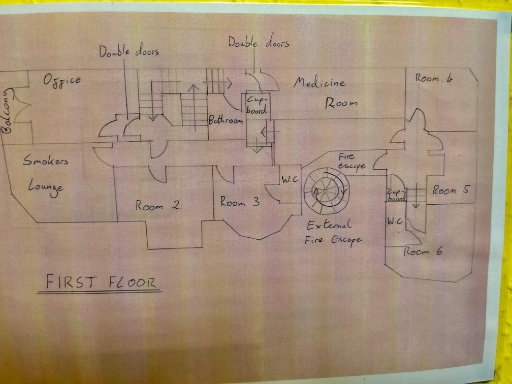 Double doors
Double doors
Office
Balcony
Medicine
Room
Room 4
Cup-
board
Bathroom
Smokers
Lounge
Room 2
Room 3
W.C
Fire
escape
External
Fire Escape
Cup-
board
W.C
Room 5
Room 6
FIRST FLOOR